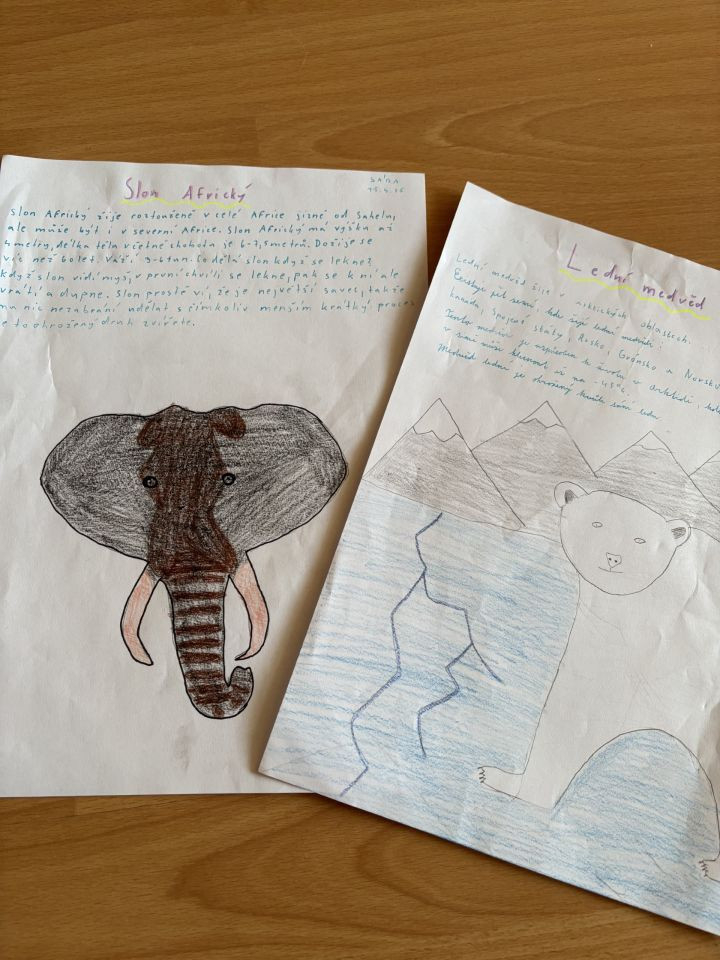 Slon Africký
SÁRA
Slon Africký žije roztoušeně v celé Africe jižně od Sahelu,
ale může být i v severní Africe. Slon Africký má výšku až
4 metry, délka těla včetně chobota je 6-7,5 metrů. Dožije se
víc než 60 let. Váží 3-6 tun. Co dělá slon když se lekne?
když slon vidí myš, v první chvíli se lekne, pak se k ní ale
vrátí a dupne. Slon prostě ví, že je největší savec, takže
mu nic nezabrání udělat s čímkoliv menším krátký proces
Je to ohrožený druh zvířete.
Lední medvěd
Lední medvěd žije v arktických oblastech.
Existuje pět zemí, kde žijí lední medvědi:
kanada, Spojené státy, Rusko, Grónsko a Norsko
Tento medvěd je uzpůsoben k životu v arktidě, kde
v zimě může klesnout až na -45°c.
Medvěd lední je ohrožený kvůli tání ledu.